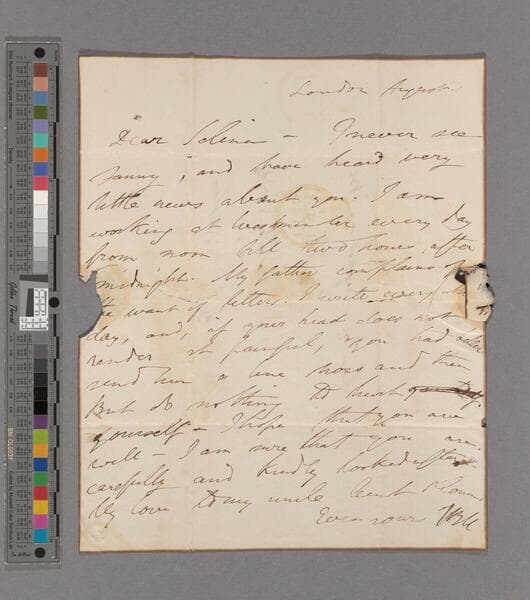 London August
Dear Selina - I never see
Fanny, and have heard very
little news about you. I am
working at Westminster every day
from noon till two hours after
midnight. My father complains of
the want of letters. I write every
day, and, if your head does not
render it painful, you had better
send him a line now and then
But do nothing to hurt
yourself - I hope that you are
well - I am sure that you are
carefully and kindly looked after
My love to my uncle Aunt
Ever yours TBM